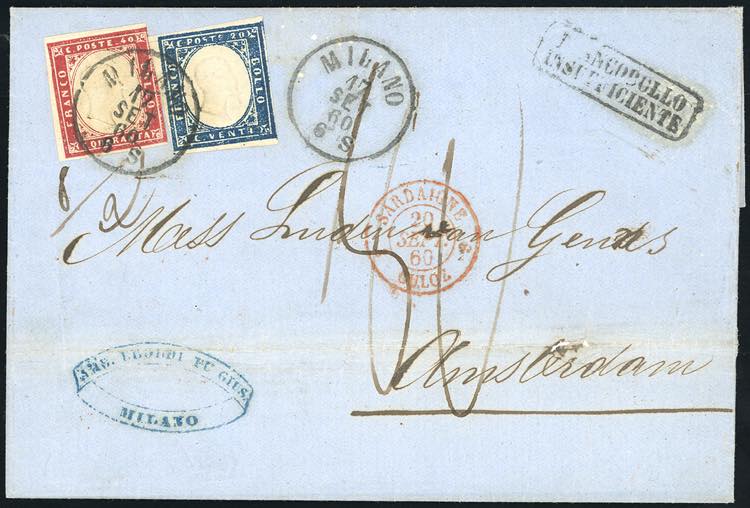 C. POSTE 40
FRANCO
QUARANTA
C. POSTE 20
FRANCO
BOLLO
C. VENTI
MILANO
17
SET
60
6 S
MILANO
17
SET
60
6 S
FRANCOBOLLO
INSUFFICIENTE
SARDAIGNE
20
SEPT.
60
CULOZ
Mess
van
Amsterdam
FU GIUS.
MILANO